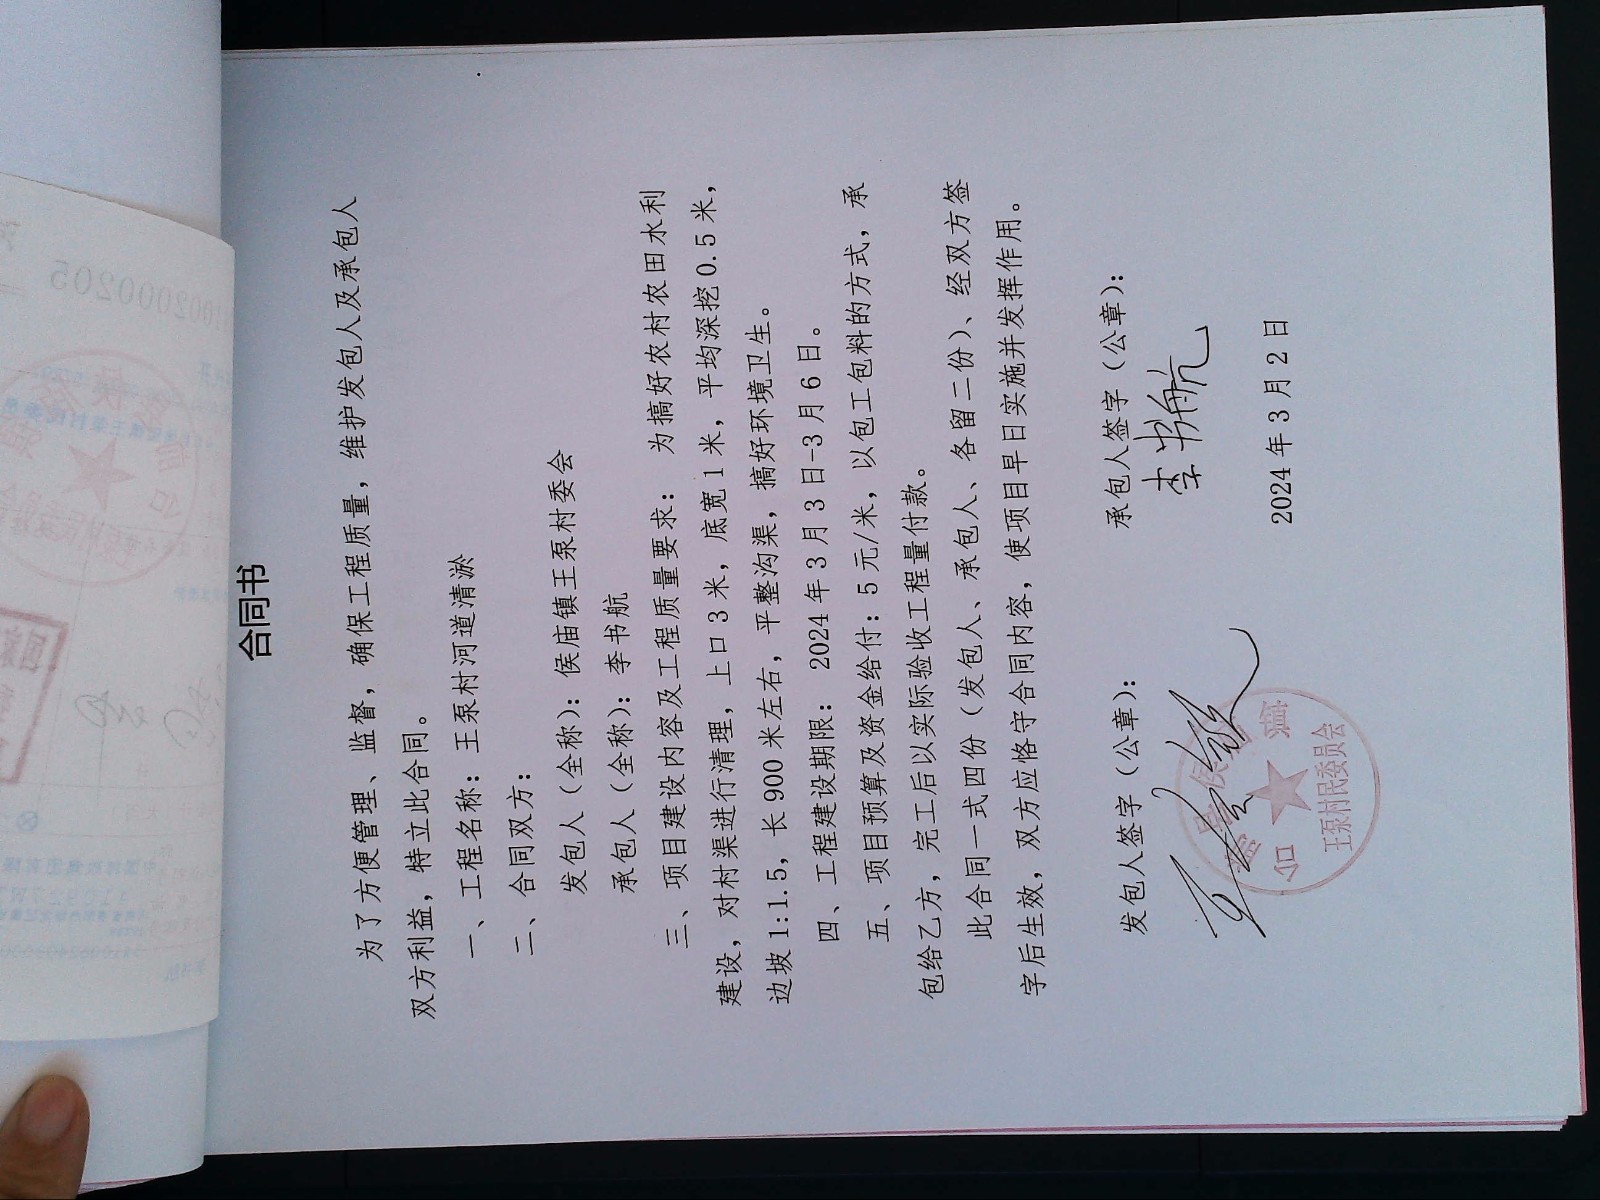 合同书
为了方便管理、监督，确保工程质量，维护发包人及承包人
双方利益，特立此合同。
一、工程名称：王泵村河道清淤
二、合同双方：
发包人（全称）：侯庙镇王泵村委会
承包人（全称）：李书航
三、项目建设内容及工程质量要求： 为搞好农村农田水利
建设，对村渠进行清理，上口 3 米，底宽 1 米，平均深挖 0.5 米，
边坡 1:1.5，长 900 米左右，平整沟渠，搞好环境卫生。
四、工程建设期限： 2024 年 3 月 3 日-3 月 6 日。
五、项目预算及资金给付：5 元/米，以包工包料的方式，承
包给乙方，完工后以实际验收工程量付款。
此合同一式四份（发包人、承包人、各留二份）、经双方签
字后生效，双方应恪守合同内容，使项目早日实施并发挥作用。
发包人签字（公章）： 承包人签字（公章）：
李书航
王泵村民委员会
2024 年 3 月 2 日